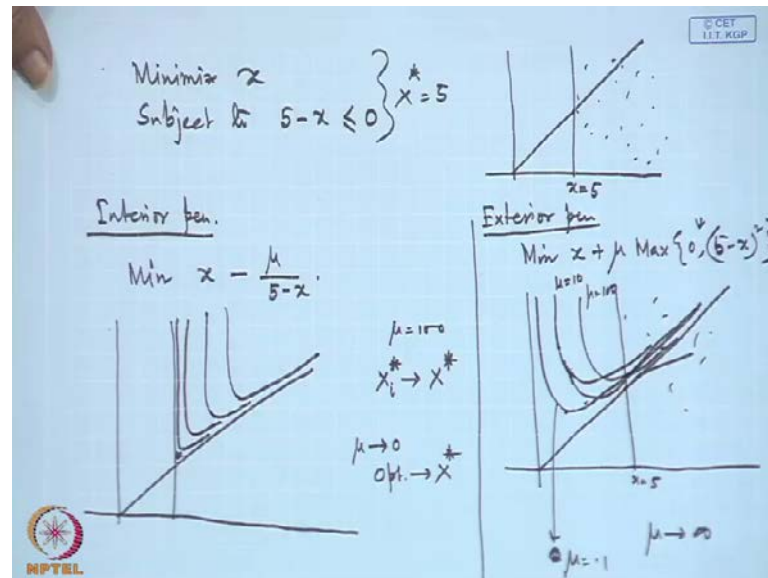 © CET
I.I.T. KGP
Minimize x
Subject to 5-x ≤ 0 } X* = 5
x=5
Interior pen.
Min x - μ/(5-x).
μ=100
X*ᵢ → X*
μ→0
Opt. → X*
Exterior pen.
Min x + μ Max{0, (5-x)²}
μ=10
μ=100
x=5
μ=.1
μ→∞
NPTEL